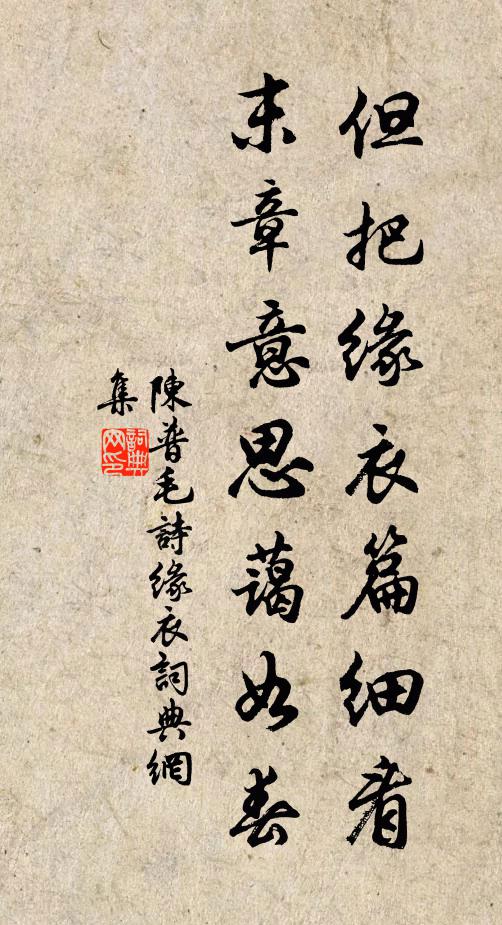 但把緣衣篇細看
末章意思藹如春
陳普毛詩緣衣詞典網
集
詞典网印